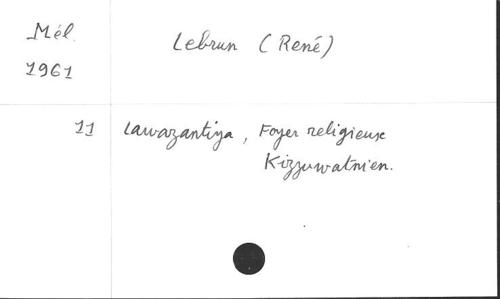 Mél.
1961
Lebrun (René)
11 Lawazantiya, Foyer religieux
Kizzuwatnien.